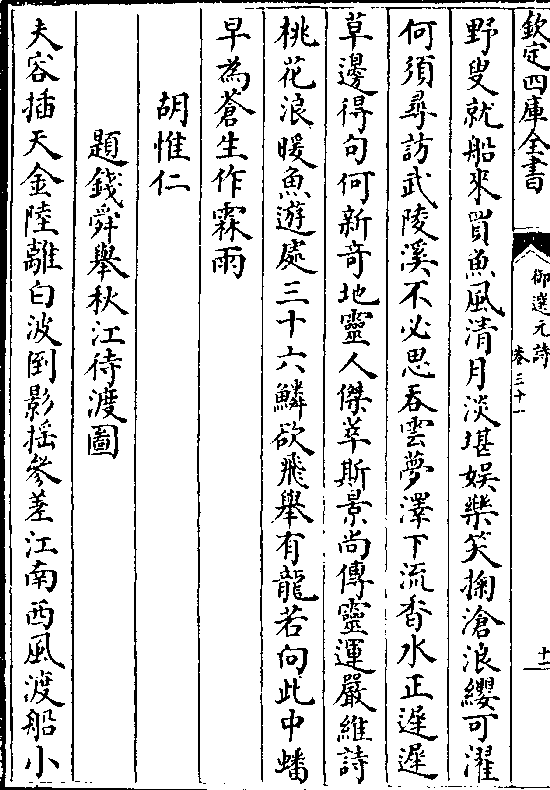 欽定四庫全書
御選元詩
卷三十一
十二
野叟就船來買魚風清月淡堪娛樂笑掬滄浪纓可濯
何須尋訪武陵溪不必思吞雲夢澤下流香水正遲遲
草邊得句何新奇地靈人傑萃斯景尚傳靈運嚴維詩
桃花浪暖魚遊處三十六鱗欲飛舉有龍若向此中蟠
早為蒼生作霖雨
胡惟仁
題錢舜舉秋江待渡圖
夫容插天金陸離白波倒影搖參差江南西風渡船小